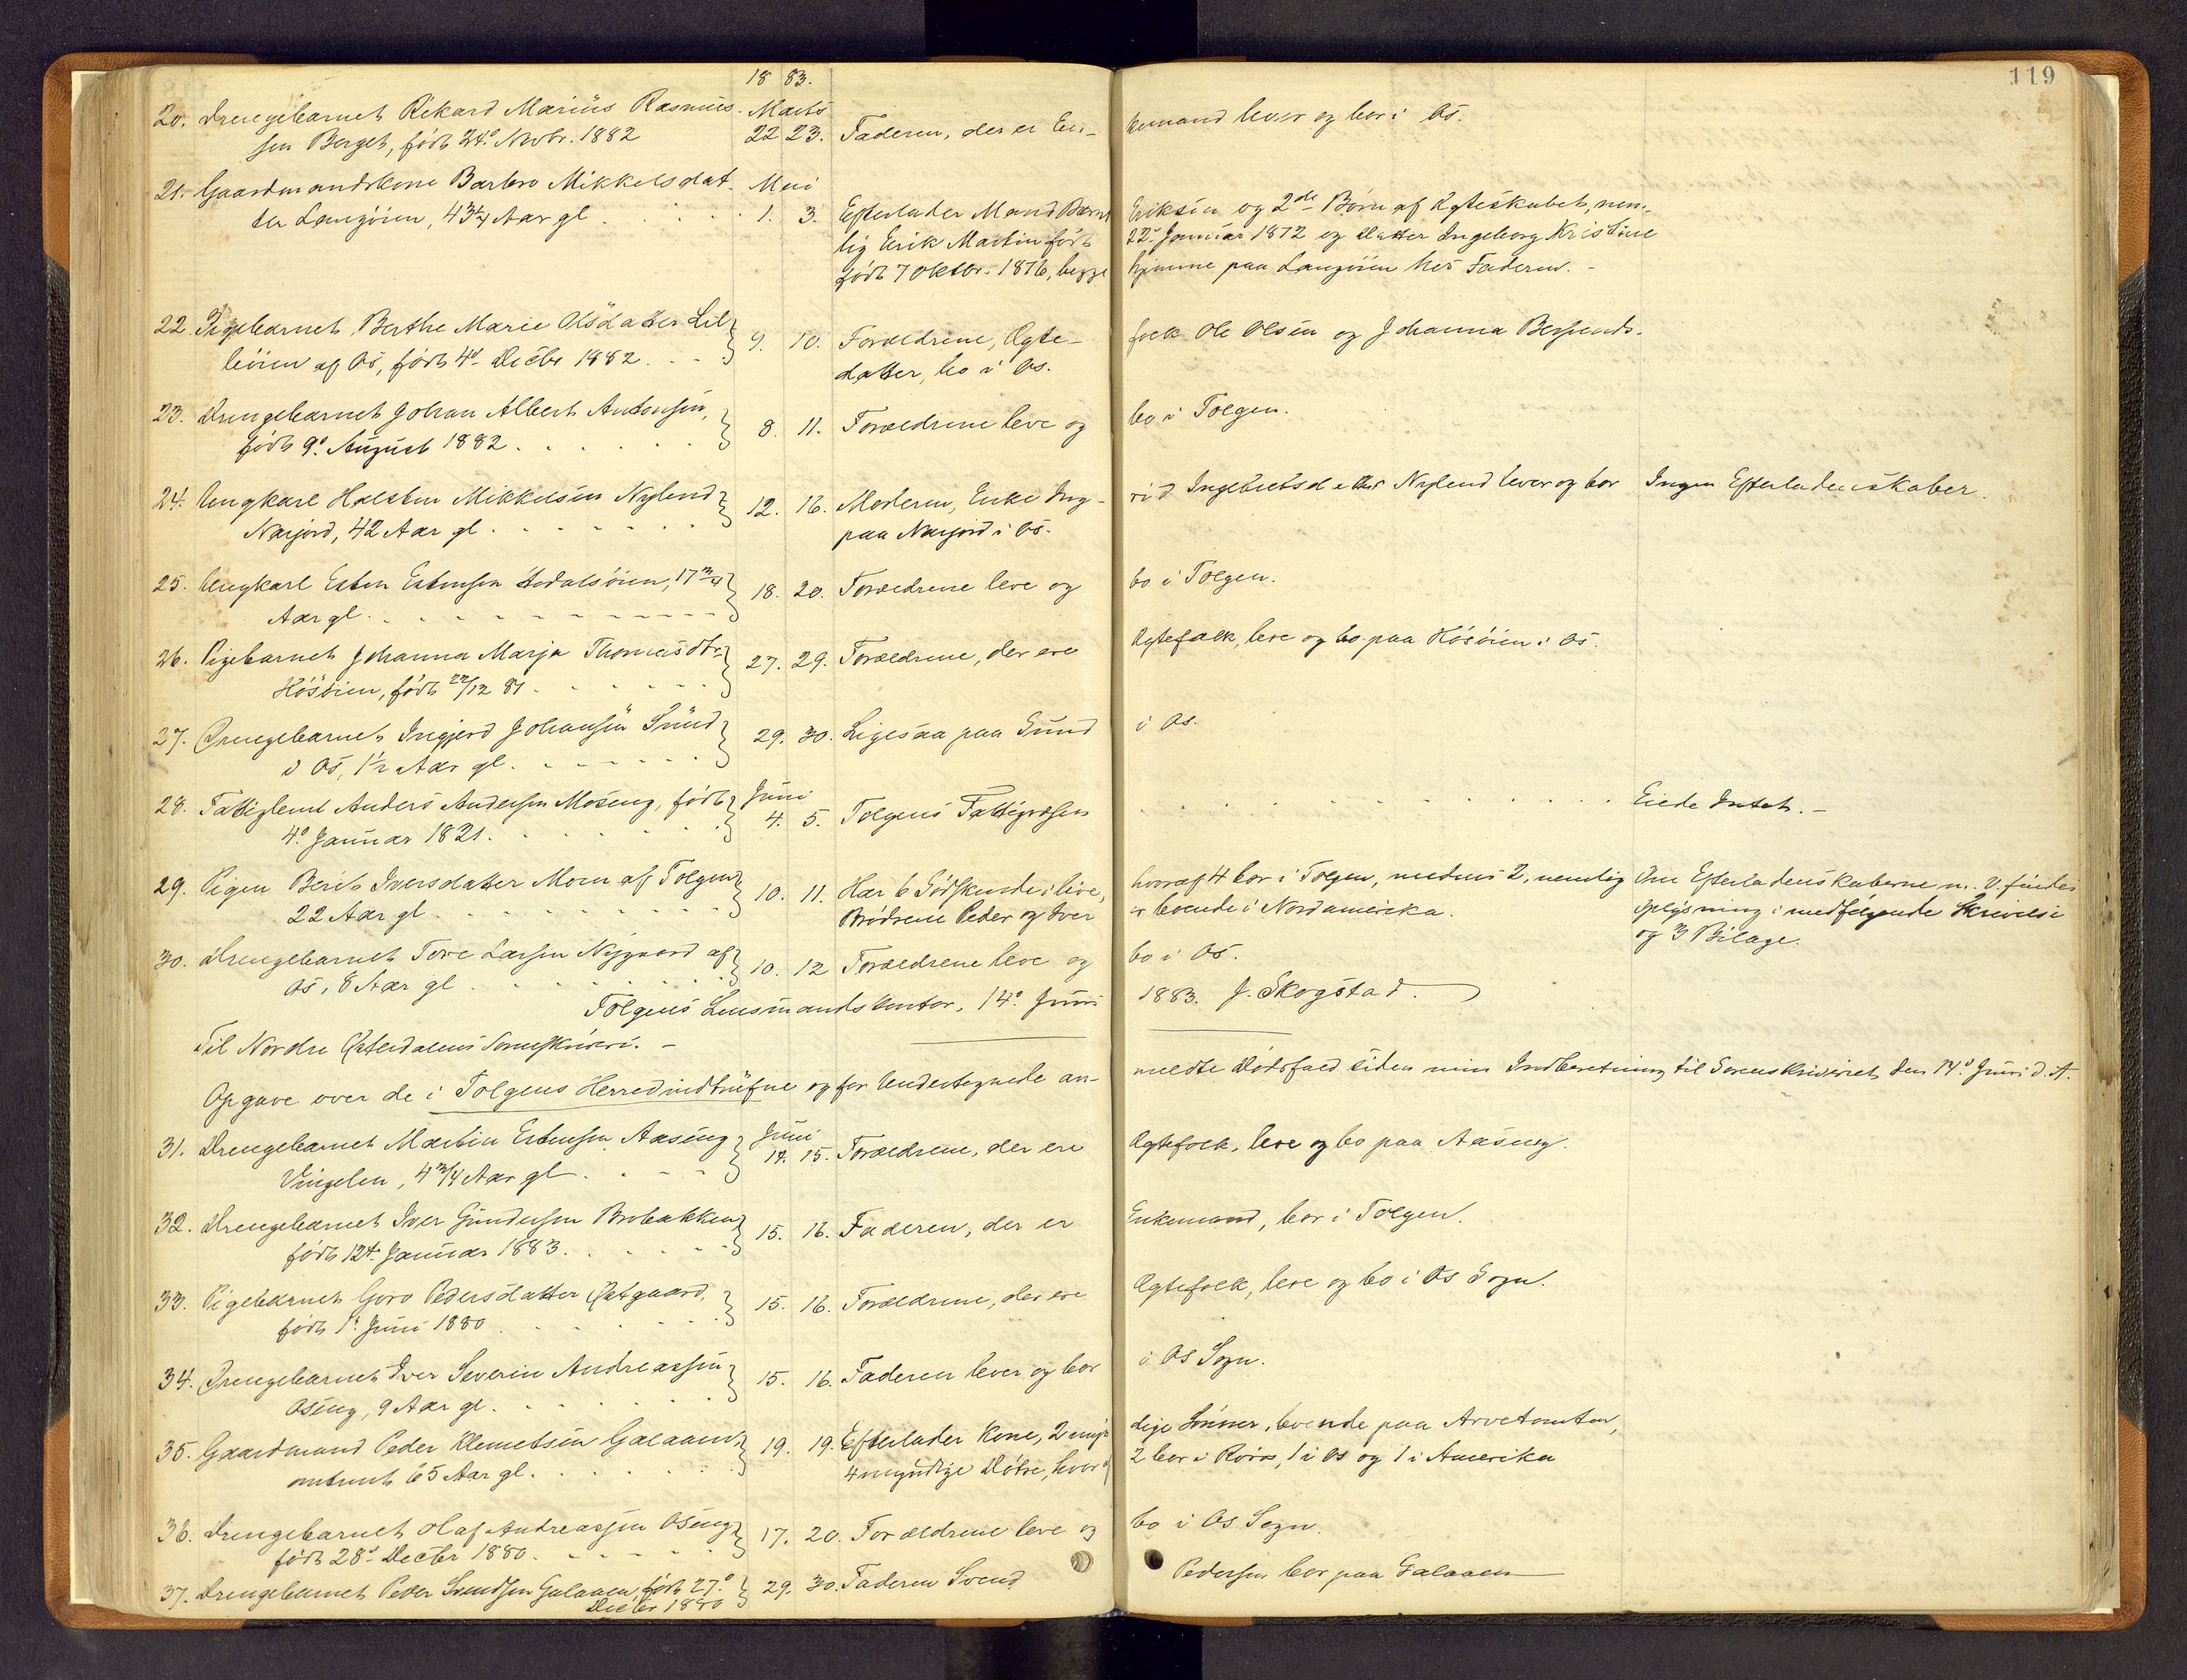 119
18 83.
20. Drengebarnet Rikard Marius Rasmus- Marts
sen Berget, født 24' Novbr. 1882 22 23. Faderen, der er En- kemand lever og bor i Os.
21. Gaardmandskone Barbro Mikkelsdat- Mai
ter Langøien, 43 1/4 Aar gl . . . 1. 3. Efterlader Mand Bernt Eriksen og 2de Børn af Ægteskabet, nem-
lig Erik Martin født 22' Januar 1872 og Datter Ingeborg Kristine
født 7 Oktbr. 1876, begge hjemme paa Langøien hos Faderen. -
22. Pigebarnet Berthe Marie Olsdatter Lil- 9. 10. Forældrene, Ægte- folk Ole Olsen og Johanna Bersvends-
leøien af Os, født 4' Decbr 1882 . . . datter, bo i Os.
23. Drengebarnet Johan Albert Antonsen, 8. 11. Forældrene leve og bo i Tolgen.
født 9' August 1882 . . . .
24. Ungkarl Halsten Mikkelsen Nylend 12. 16. Moderen, Enke Ing- rid Ingebretsdatter Nylend lever og bor Ingen Efterladenskaber.
Narjord, 42 Aar gl . . . . paa Narjord i Os.
25. Ungkarl Esten Estensen Hodalsøien, 17 3/4 18. 20. Forældrene leve og bo i Tolgen.
Aar gl. . . . .
26. Pigebarnet Johanna Marja Thomasdtr. 27. 29. Forældrene, der ere Ægtefolk, leve og bo paa Høsøien i Os.
Høsøien, født 22/12 81 . . . .
27. Drengebarnet Ingjerd Johansen Sund 29. 30. Ligesaa paa Sund i Os.
i Os, 1 1/2 Aar gl. . . . .
28. Fattiglem Anders Andersen Moseng, født Juni
4. 5. Tolgens Fattigvæsen . . . . Eiede Intet. -
4' Januar 1821. . . . .
29. Pigen Berit Iversdatter Moen af Tolgen 10. 11. Har 6 Sødskende i live, hvoraf 4 bor i Tolgen, medens 2, nemlig Om Efterladenskaberne m. v. findes
22 Aar gl . . . . Brødrene Peder og Iver er boende i Nordamerika. oplysning i medfølgende Skrivelse
og 3 Bilage.
30. Drengebarnet Tore Larsen Nygaard af 10. 12 Forældrene leve og bo i Os.
Os, 8 Aar gl . . . .
Tolgens Lensmandskontor, 14' Juni 1883. J. Skogstad.
Til Nordre Østerdalens Sorenskriveri. -
Opgave over de i Tolgens Herred indtrufne og for Undertegnede an- meldte Dødsfald siden min Indberetning til Sorenskriveriet den 14' Juni d. A.
31. Drengebarnet Martin Estensen Aaseng Juni
14. 15. Forældrene, der ere Ægtefolk, leve og bo paa Aaseng.
Vingelen, 4 3/4 Aar gl . . . .
32. Drengebarnet Iver Gundersen Brobakken 15. 16. Faderen, der er Enkemand, bor i Tolgen.
født 12te Januar 1883. . . . .
33. Pigebarnet Goro Pedersdatter Østgaard, 15. 16. Forældrene, der ere Ægtefolk, leve og bo i Os Sogn.
født 1' Juni 1880 . . . .
34. Drengebarnet Iver Severin Andreassen 15. 16. Faderen lever og bor i Os Sogn.
Oseng, 9 Aar gl. . . . .
35. Gaardmand Peder Klemetsen Galaaen, 19. 19. Efterlader Kone, 2 myn- dige Sønner, boende paa Arvetomten,
omtrent 65 Aar gl. . . . . 4 myndige Døtre, hvoraf 2 bor i Røros, 1 i Os og 1 i Amerika
36. Drengebarnet Olaf Andreassen Oseng 17. 20. Forældrene leve og bo i Os Sogn.
født 28' Decbr 1880. . . . .
37. Drengebarnet Peder Svendsen Galaaen, født 27' 29. 30. Faderen Svend Pedersen bor paa Galaaen
Decbr 1880